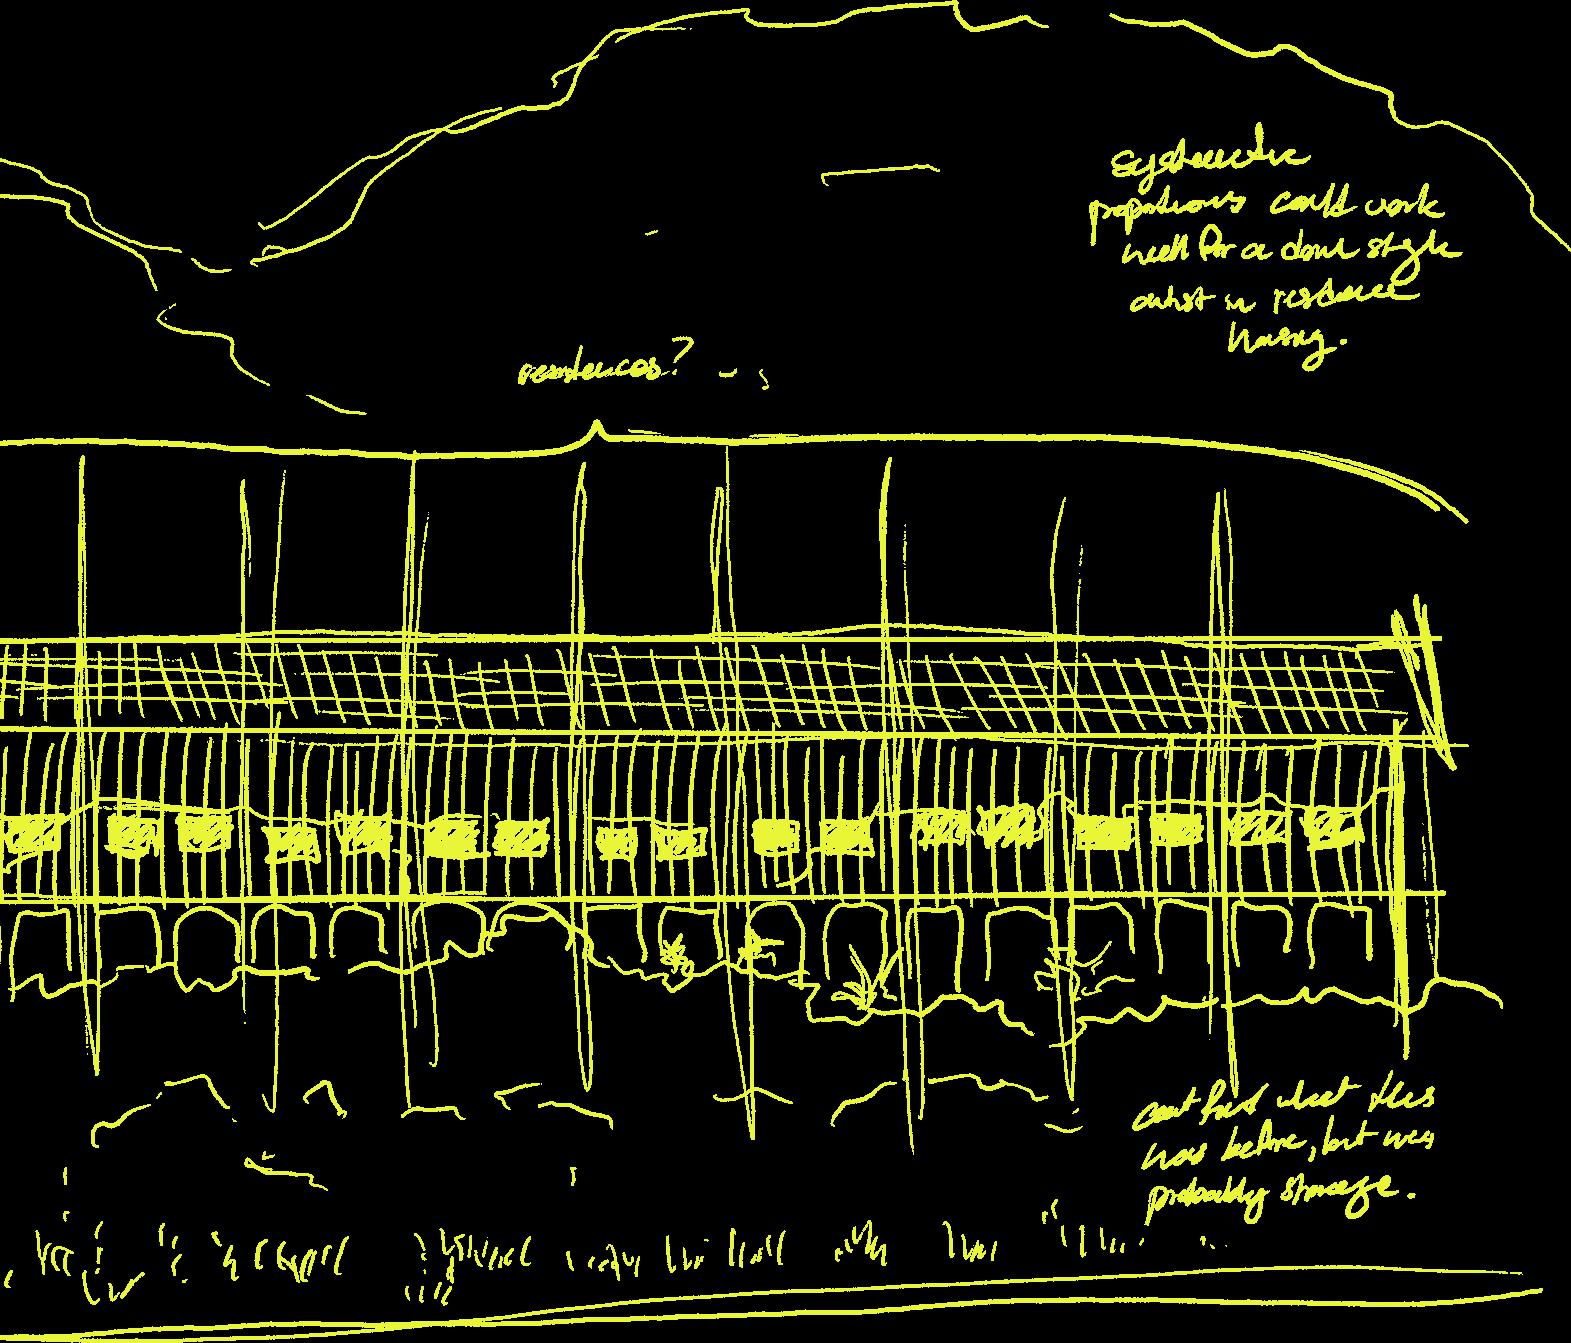 systematic
proportions could work
well for a dorm style
artist in residence
housing.
residences?
cant find what this
was before, but was
probably storage.